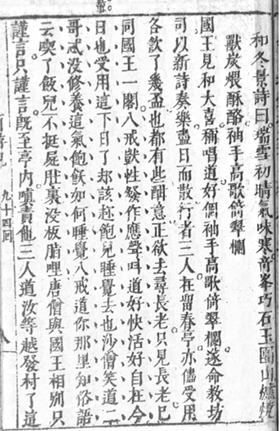 和冬景詩曰瑞雪初晴氣味寒奇峯巧石玉團山爐燒
獸炭煨酥酪袖手高歌倚翠欄
國王見和大喜稱唱道好個袖手高歌倚翠欄遂命教坊
司以新詩奏樂盡日而散行者三人在留春亭亦儘受用
各飲了幾盃也都有些酣意正欲去尋長老只見長老已
同國王一閣八戒獃性發作應聲叫道好快活好自在今
日也受用這一下了却該趁飽兒睡覺去也沙僧笑道二
哥忒沒修養這氣飽飫如何睡覺八戒道你那里知俗語
云喫了飯兒不挺屍肚裏沒板脂哩唐僧與國王相別只
謹言只謹言既至亭內嗔責他三人道汝等越發村了這
九十四回